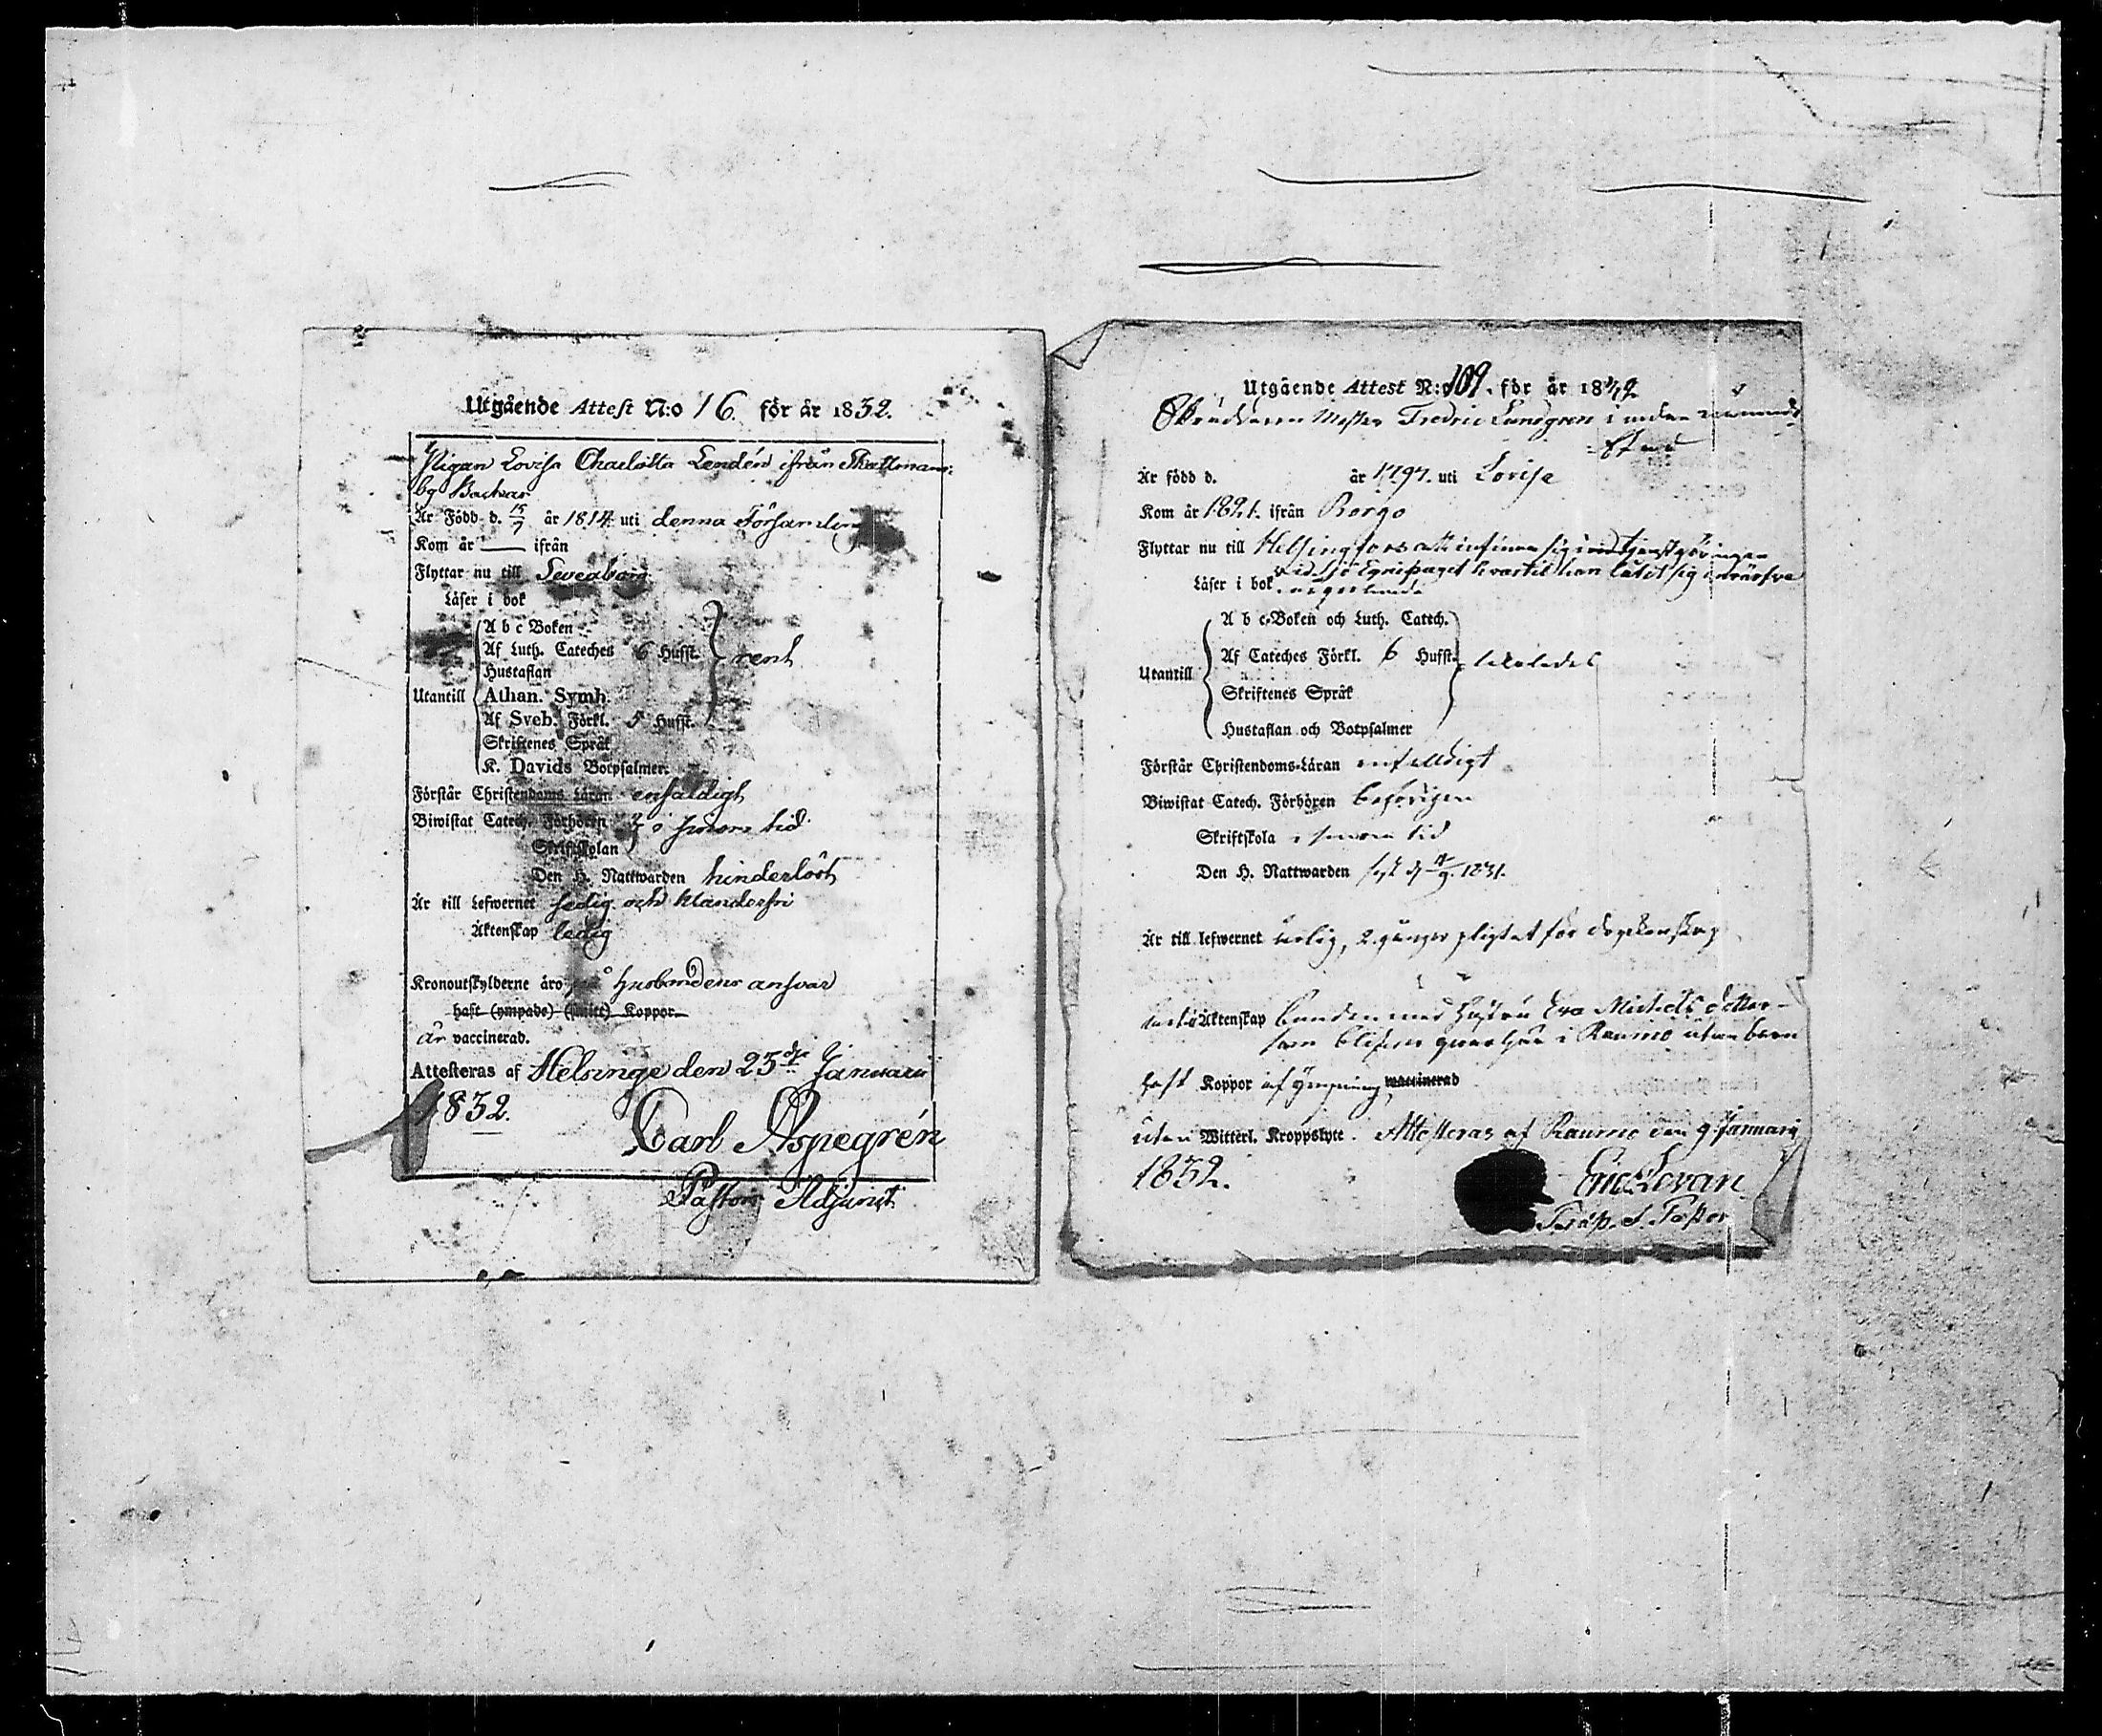 Utgående Attest N:o 16. för år 1832.
Pigan Lovisa Charlotta Lendén ifrån
by Backas
Är Född d. 15/7 år 1814 uti denna Församling
Kom år — ifrån
Flyttar nu till Sveaborg
Läser i bok
A b c Boken
Af Luth. Cateches 6 Hufst.
rent
Hustaflan
Utantill
Athan. Symb.
Af Sveb. Förkl. 5 Hufst.
Skriftenes Språk
K. Davids Botpsalmer.
Förstår Christendoms Läran enfaldigt
Biwistat Catech. Förhören i sinom tid
Skriftskolan
Den H. Nattwarden hinderlöst
Är till Lefwernet sedig och klanderfri
Äktenskap ledig
Kronoutskylderne äro på Husbondens ansvar
haft (ympade) (smitt) Koppor
är vaccinerad.
Attesteras af Helsinge den 25 Januari
1832.
Carl Aspegrén
Pastors Adjunct.
Utgående Attest N:o 109. för år 1832
Skräddaren Mester Fredric Lundgren i
Är född d. år 1797. uti Lovisa
Kom år 1821. ifrån Borgo
Flyttar nu till Helsingfors att infinna sig
vid Sjö Equipaget hvartil han låtit sig
Läser i bok
A b c-Boken och Luth. Catech.
Af Cateches Förkl. 6 Hufst.
Utantill
Skriftenes Språk
Hustaflan och Botpsalmer
Förstår Christendoms-Läran enfalldigt
Biwistat Catech. Förhören behörigen
Skriftskola i sinom tid
Den H. Nattwarden 1831.
Är till lefwernet 2. gånger pligtat för dryckenskap
Äktenskap bunden med Hustru Eva Michels dotter
som blifver qvar här i Raumo utan barn
haft Koppor af ympning, vaccinerad
utan Witterl. Kroppslyte. Attesteras af Raumo den 9 Januarij
1832.